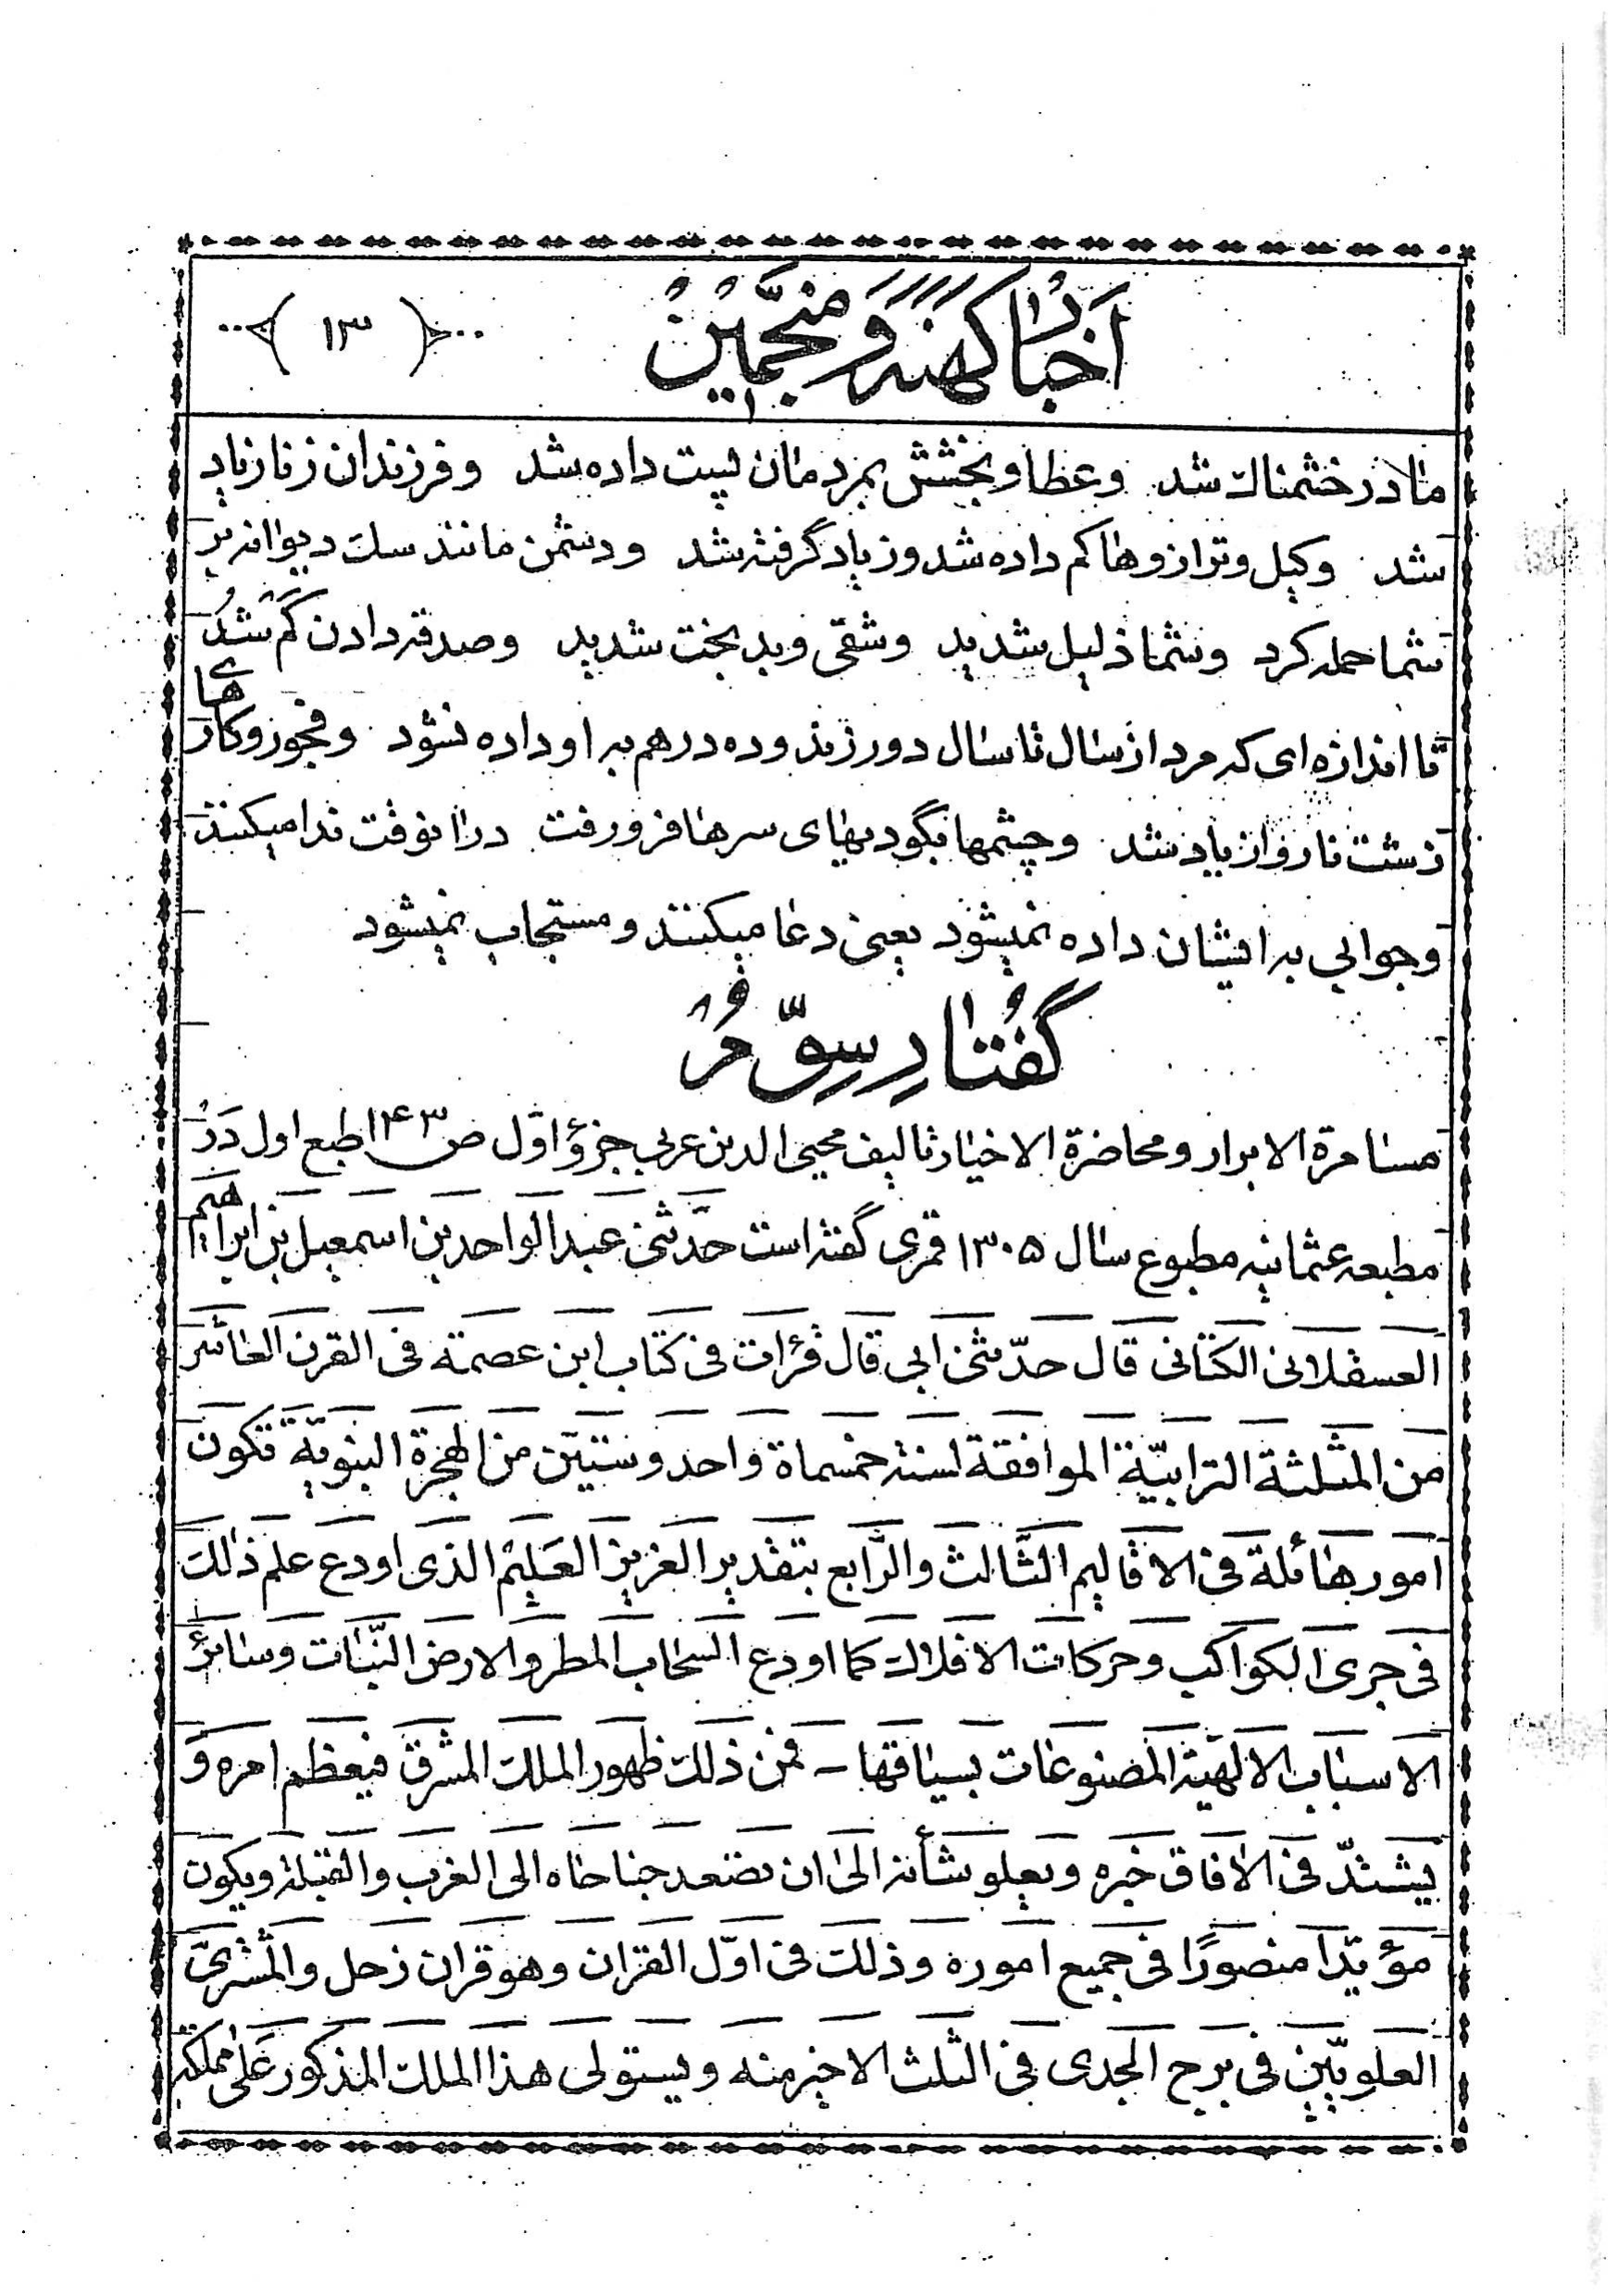 اخبار کهنه و منجمین
﴿ ۱۳ ﴾
مادر خشمناک شد و عطا و بخشش بمردمان پست داده شد و فرزندان زنا زیاد
شد و کیل و ترازوها کم داده شد و زیاد گرفته شد و دشمن مانند سگ دیوانه بر
شما حمله کرد و شما ذلیل شدید و شقی و بدبخت شدید و صدقه دادن کم شد
تا اندازه ای که مرد از سال تا سال دور زند و ده درهم به او داده نشود و فجور و کارهای
زشت ناروا زیاد شد و چشمها بگودیهای سرها فرو رفت در انوقت ندا میکنند
و جوابی به ایشان داده نمیشود یعنی دعا میکنند و مستجاب نمیشود
گفتارِ سِوّم
مسامرة الابرار و محاضرة الاخیار تالیف محیی الدین عربی جزؤ اوّل ص ۱۴۳ طبع اول دَر
مطبعه عثمانیه مطبوع سال ۱۳۰۵ قمری گفته است حدَّثنی عبد الواحد بن اسمعیل بن ابراهیم
العسقلانی الکتانی قال حدّثنی ابی قال قرئات فی کتاب ابن عصمة فی القرن العاشر
من المثلثة الترابیّة الموافقة لسنة خمسماة واحد و ستیّن من الهجرة النبویّة تکون
امور هائلة فی الاقالیم الثَّالث والرَّابع بتقدیر العزیز العَلیم الذی اودع علم ذٰلک
فی جری الکواکب و حرکات الافلاک کما اودع السّحاب المطر و الارض النّبات و سایرَ
الاسباب الالهیّة المصنوعات بسیاقها – فمن ذلک ظهور الملک المشرق فیعظم امره وَ
یشتدّ فی الافاق خبره و یعلو شأنه الیٰ ان تصعد جناحاه الی الغرب و القبلة و یکون
مؤیّدا منصورًا فی جمیع اموره و ذلک فی اوّل القران و هو قران زحل و المشتری
العلویّین فی برج الجدی فی الثلث الاخیر منه و یستولی هذا الملک المذکور عَلیٰ مملکة